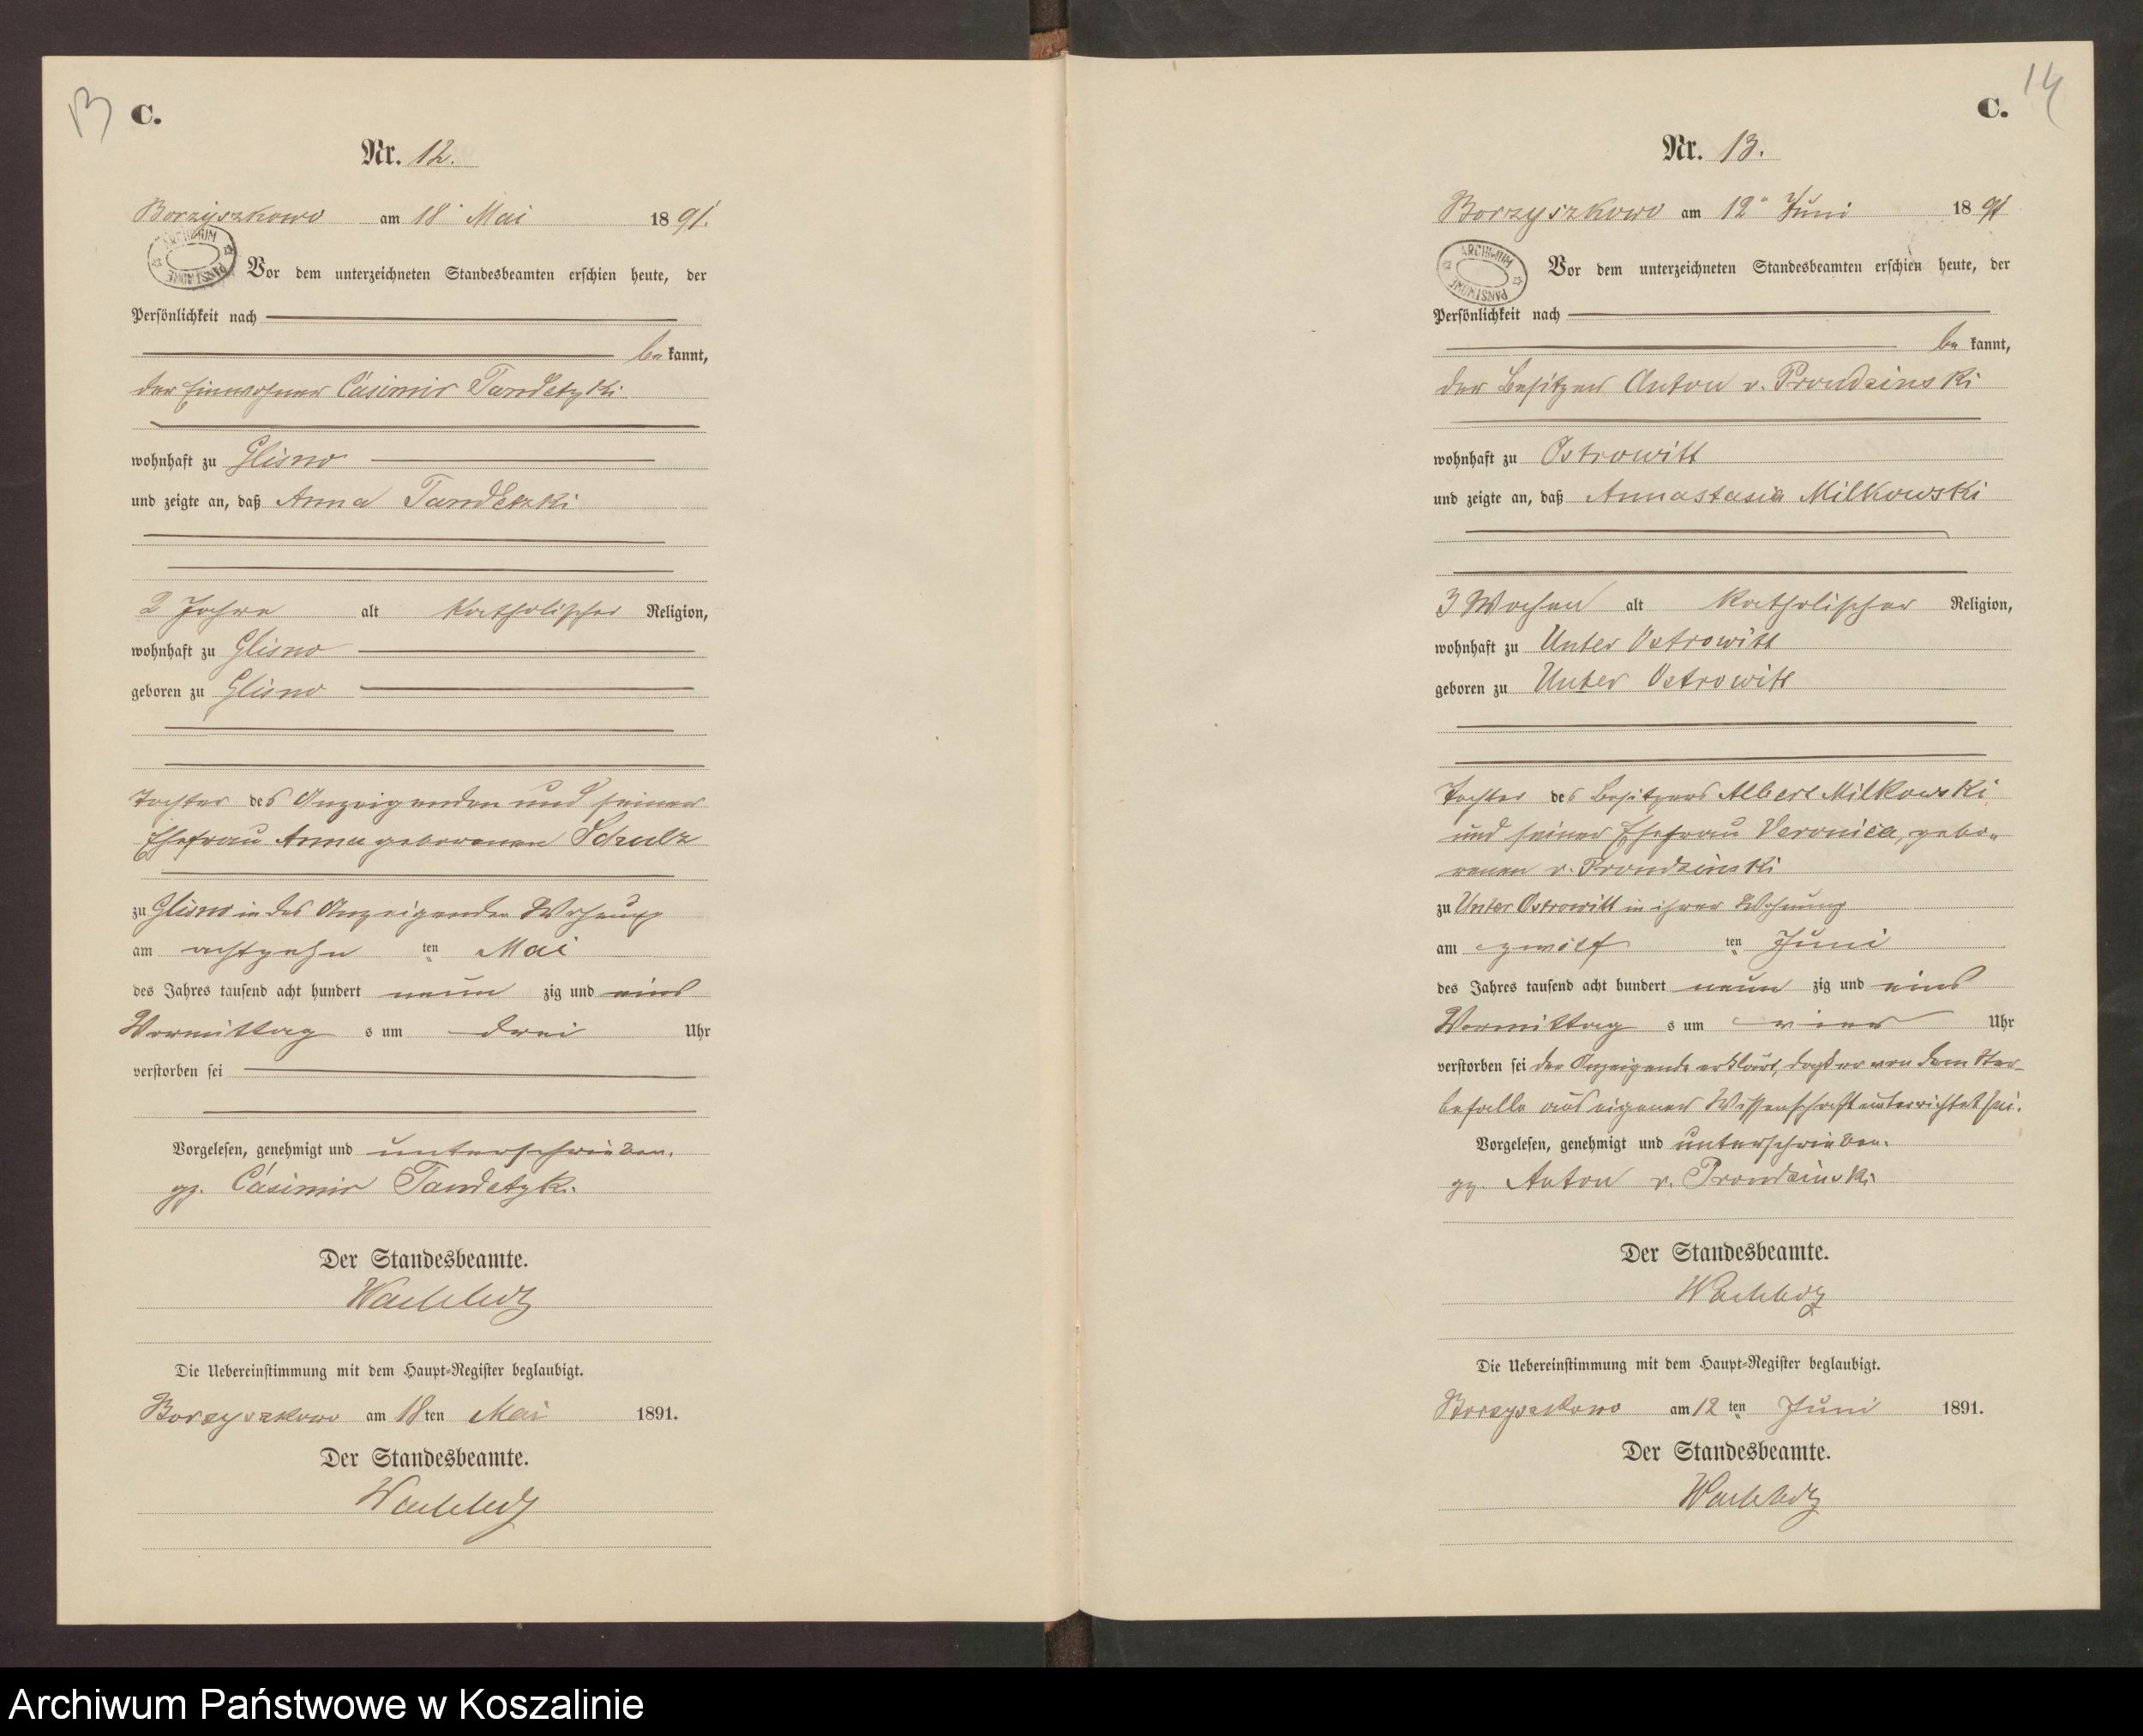 13
C.
Nr. 12.
Borzyszkowo am 18. Mai 1891.
ARCHIWUM PAŃSTWOWE
Vor dem unterzeichneten Standesbeamten erschien heute, der
Persönlichkeit nach
be kannt,
der Einwohner Casimir Tandetzki
wohnhaft zu Glisno
und zeigte an, daß Anna Tandetzki
2 Jahre alt katholischer Religion,
wohnhaft zu Glisno
geboren zu Glisno
Tochter des Anzeigenden und seiner
Ehefrau Anna geborenen Schulz
zu Glisno in des Anzeigenden Wohnung
am achtzehn ten Mai
des Jahres tausend acht hundert neun zig und eins
Vormittag s um drei Uhr
verstorben sei
Vorgelesen, genehmigt und unterschrieben.
gz. Casimir Tandetzki
Der Standesbeamte.
Die Uebereinstimmung mit dem Haupt-Register beglaubigt.
Borzyszkowo am 18ten Mai 1891.
Der Standesbeamte.
14
C.
Nr. 13.
Borzyszkowo am 12 Juni 1891
ARCHIWUM PAŃSTWOWE
Vor dem unterzeichneten Standesbeamten erschien heute, der
Persönlichkeit nach
be kannt,
der Besitzer Anton v. Prondzinski
wohnhaft zu Ostrowitt
und zeigte an, daß Annastasia Milkowski
3 Wochen alt katholischer Religion,
wohnhaft zu Unter Ostrowitt
geboren zu Unter Ostrowitt
Tochter des Besitzers Albert Milkowski
und seiner Ehefrau Veronica, gebo-
renen v. Prondzinski
zu Unter Ostrowitt in ihrer Wohnung
am zwölf ten Juni
des Jahres tausend acht hundert neun zig und eins
Vormittag s um vier Uhr
verstorben sei der Anzeigende erklärt, daß er von dem Ster-
befalle aus eigener Wissenschaft unterrichtet sei.
Vorgelesen, genehmigt und unterschrieben.
gz. Anton v. Prondzinski
Der Standesbeamte.
Die Uebereinstimmung mit dem Haupt-Register beglaubigt.
Borzyszkowo am 12 ten Juni 1891.
Der Standesbeamte.
Archiwum Państwowe w Koszalinie